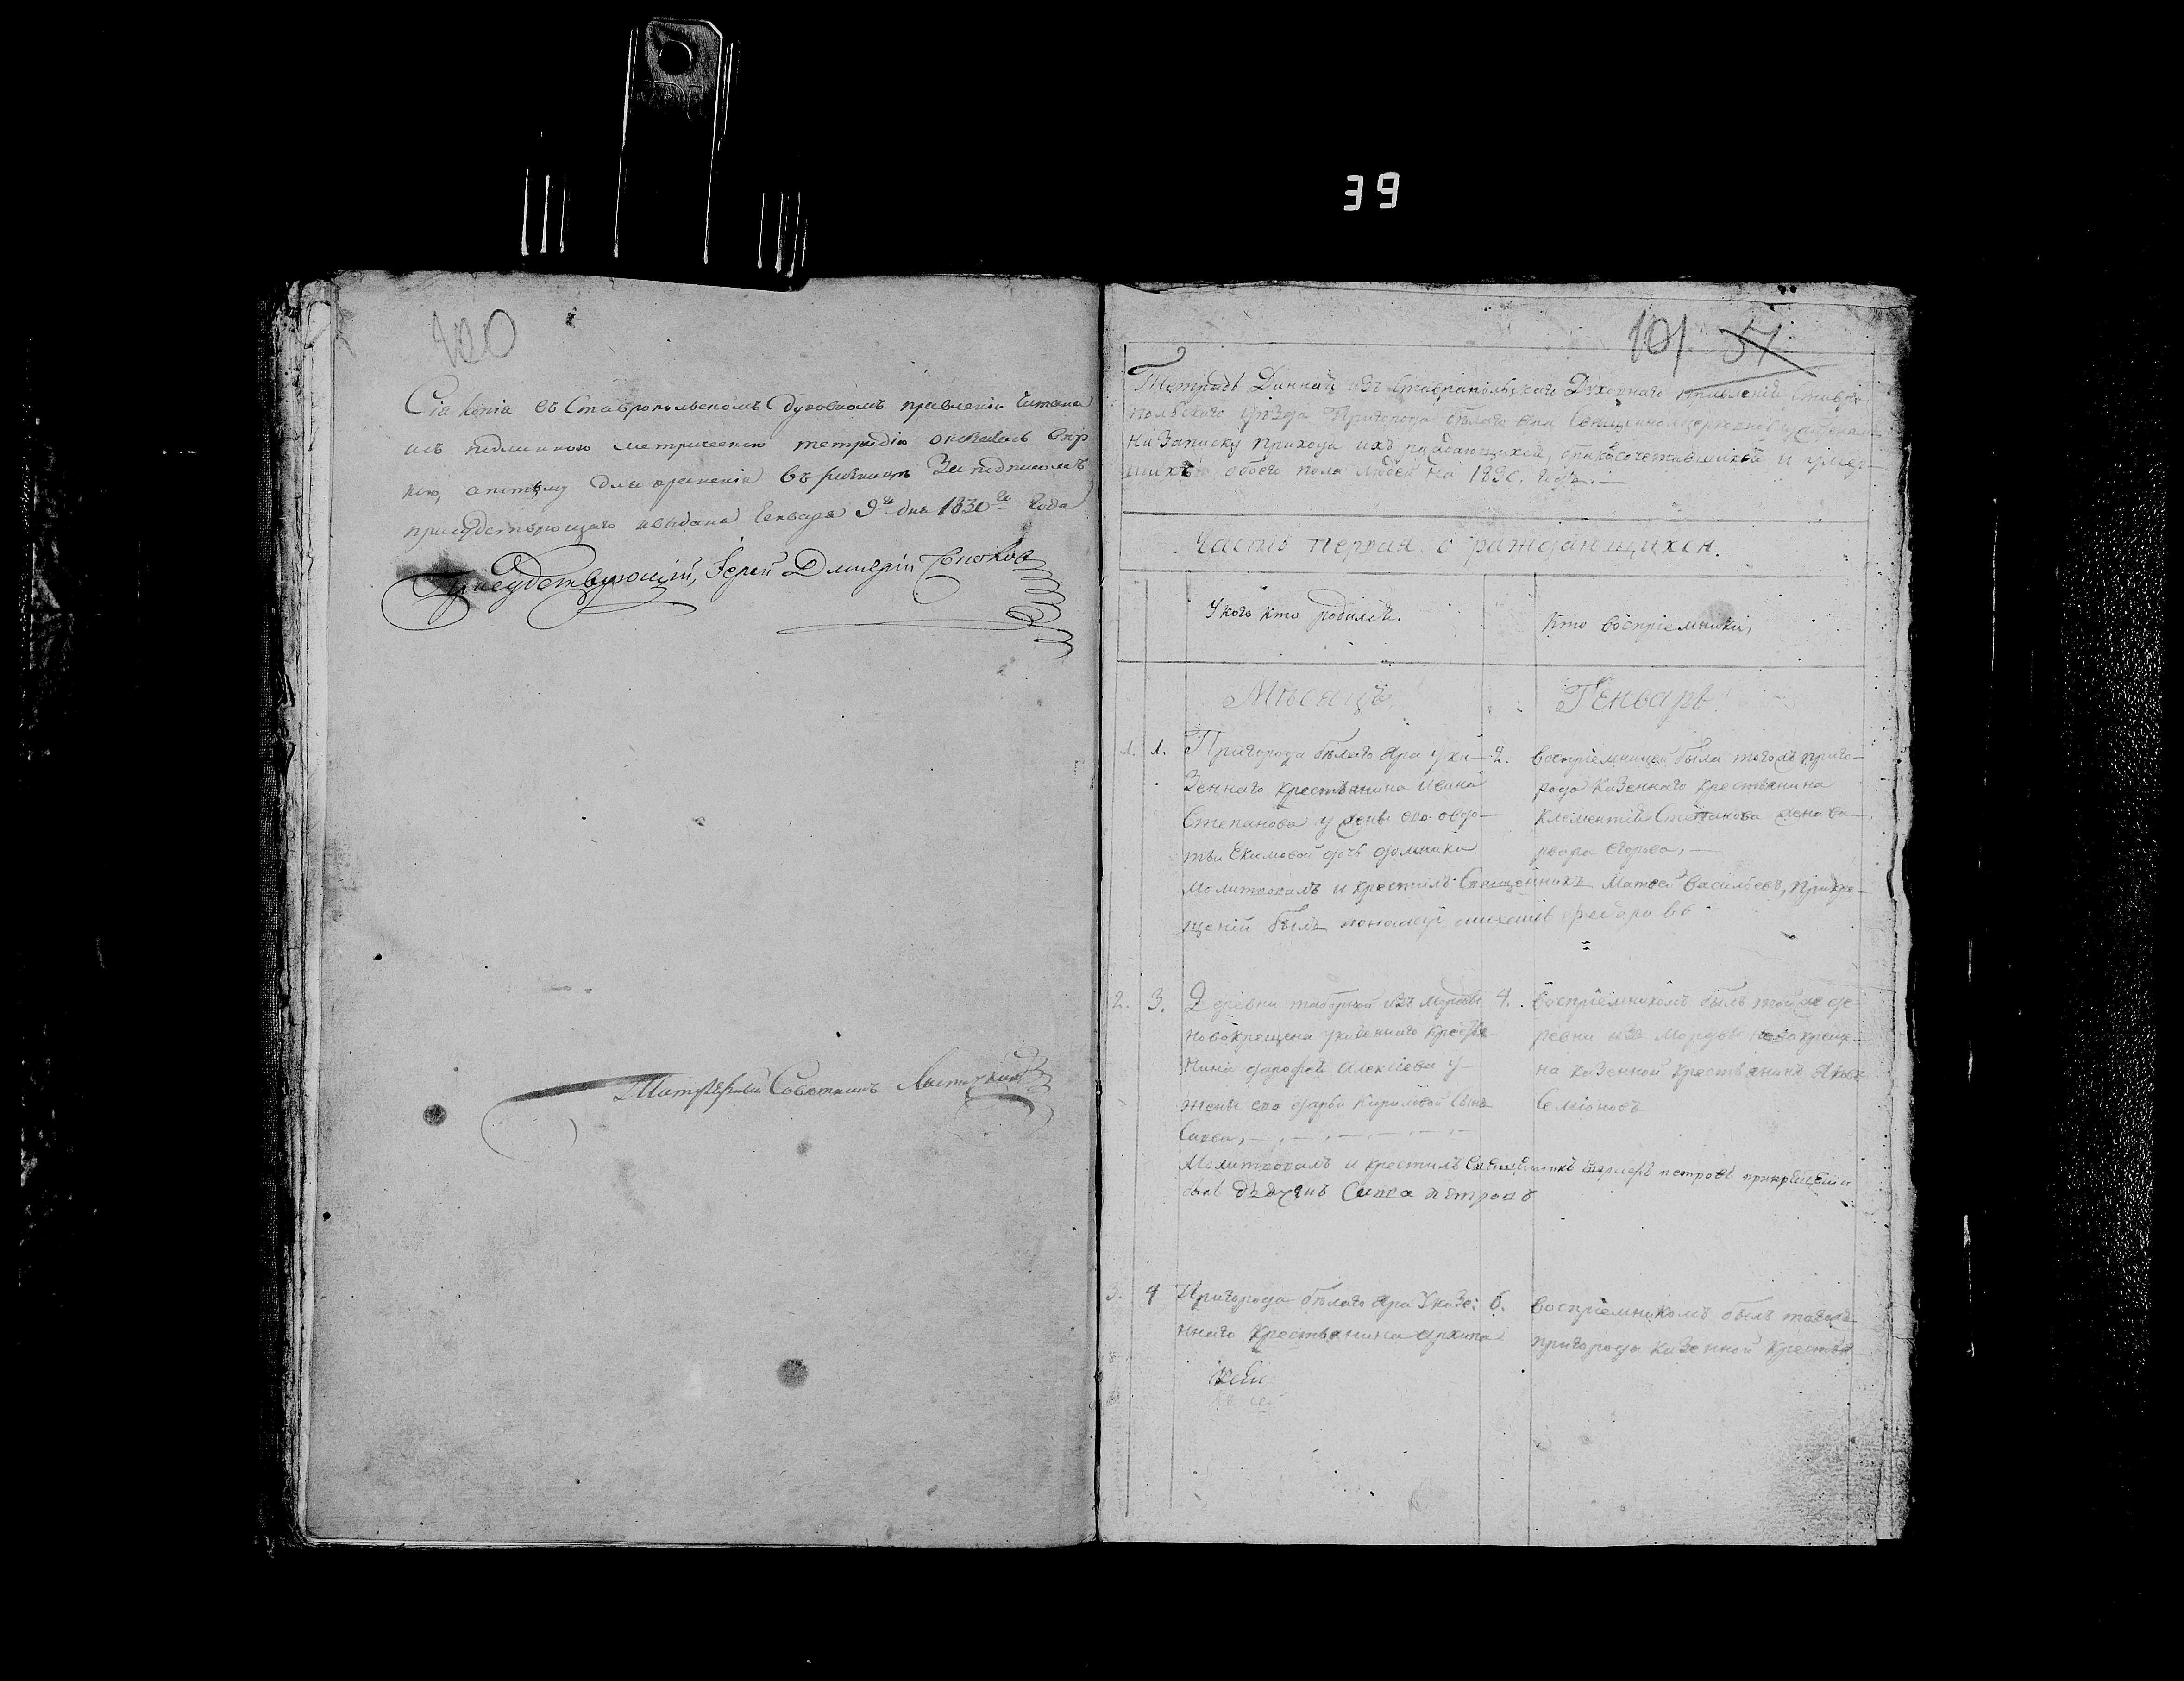 39
100
Сія копія въ Ставропольскомъ Духовномъ правленіи читана
исъ подлинною метрическою тетрадію оказалась вѣр
ною, а потому для храненія въ за подписомъ
присудствующаго и выдана Генваря 9го дня 1830го Года
Присудствующій, Іерей Дмитрій
101 51
Тетрадь Данная изъ Ставропольскаго Духовнаго Правленія Ставро-
польского Уѣзда Пригорода бѣлаго Яра Священноцерковнослужителям
на Записку прихода ихъ раждающихся, бракосочетавшихся и умер-
шихъ обоего пола людей на 1830. Годъ. —
Часть первая. о раждающихся.
У кого кто родился.
Кто воспріемники,
Мѣсяцъ
Генварь
1. 1. Пригорода бѣлаго Яра у ка-
зеннаго крестьянина Ивана
Степанова у жены его овдо-
тьи Екимовой дочь домника
2. воспріемницей была тогожъ приго-
рода Казеннаго Крестьянина
Клементія Степанова жена ва-
рвара Егорова, —
Молитвовалъ и крестилъ Священникъ Матвей Васильевъ, при кре-
щеніи былъ пономарь федоровъ
2. 3. Деревни изъ мордвы
Новокрещена у казеннаго крестья-
нина дорофея Алексѣева у
жены его дарьи Кириловой сынъ
Савва, —
4. воспріемникомъ былъ тойже де-
ревни изъ Мордвы новокреще-
на казенной крестьянинъ Яковъ
Семіоновъ
Молитвовалъ и крестилъ Священникъ петровъ прикрещеніи
былъ дьячекъ Савва петровъ
3. 4 Пригорода бѣлаго Яра У казе:
ннаго Крестьянина архипа
6. воспріемникомъ былъ тогожъ
пригорода Казенной Крестья